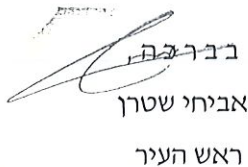 בברכה,
אביחי שטרן
ראש העיר